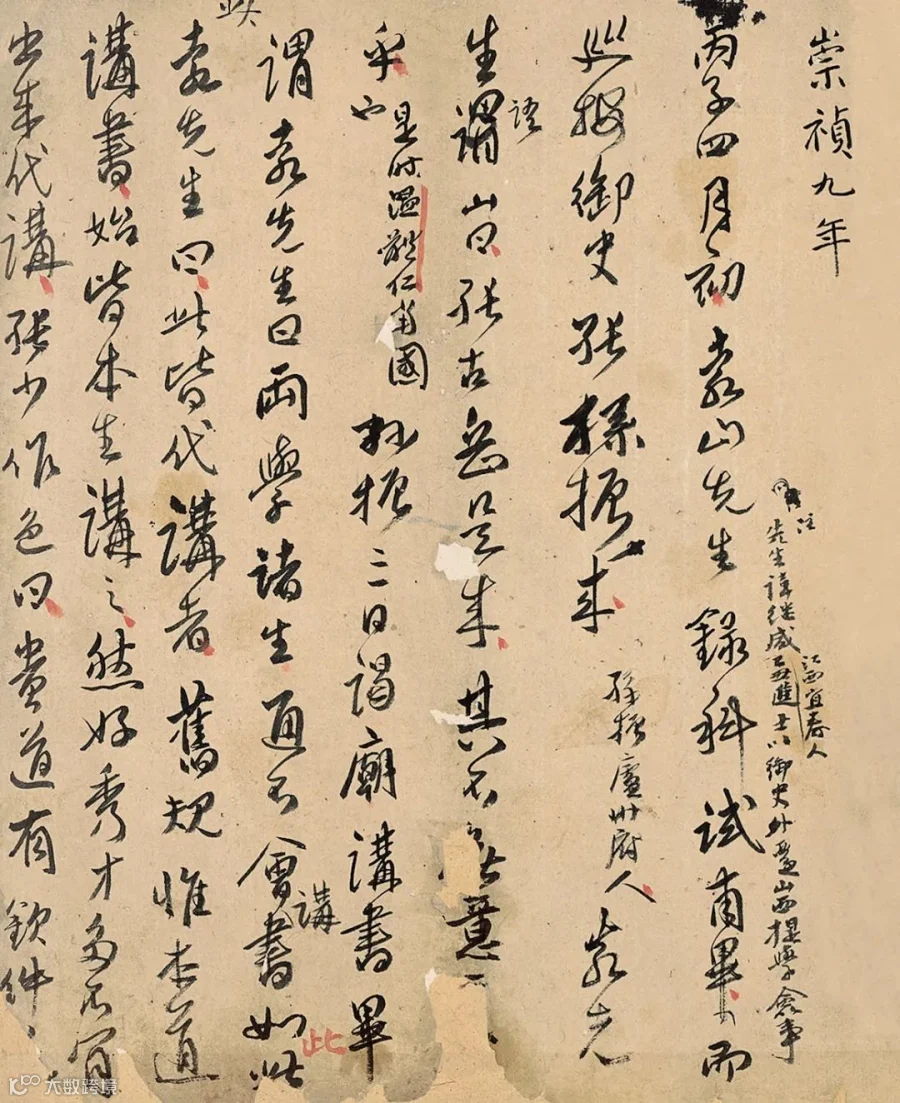 崇禎九年
注
先生諱继咸
江西宜春人
進士以御史外遷山西提學僉事
丙子四月初袁山先生錄科試甫畢而
巡按御史張孫振来
孫振廬州府人
袁先
語
生謂山曰張古岳只是来其不無意
乎也
是时温體仁當國
孫振三日謁廟講書畢
謂袁先生曰兩學諸生通不會書如此
講
此
袁先生曰此皆代講者舊規惟本道
講書始皆本生講之然好秀才多不肯
出来代講張少作色曰貴道有欽件
大数跨境